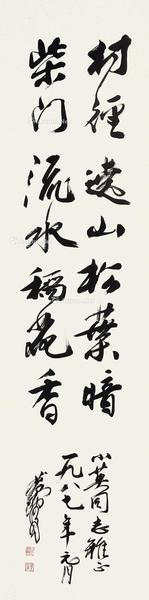 村径遶山松葉暗
柴门流水稻花香
小英同志雅正
一九八七年元月